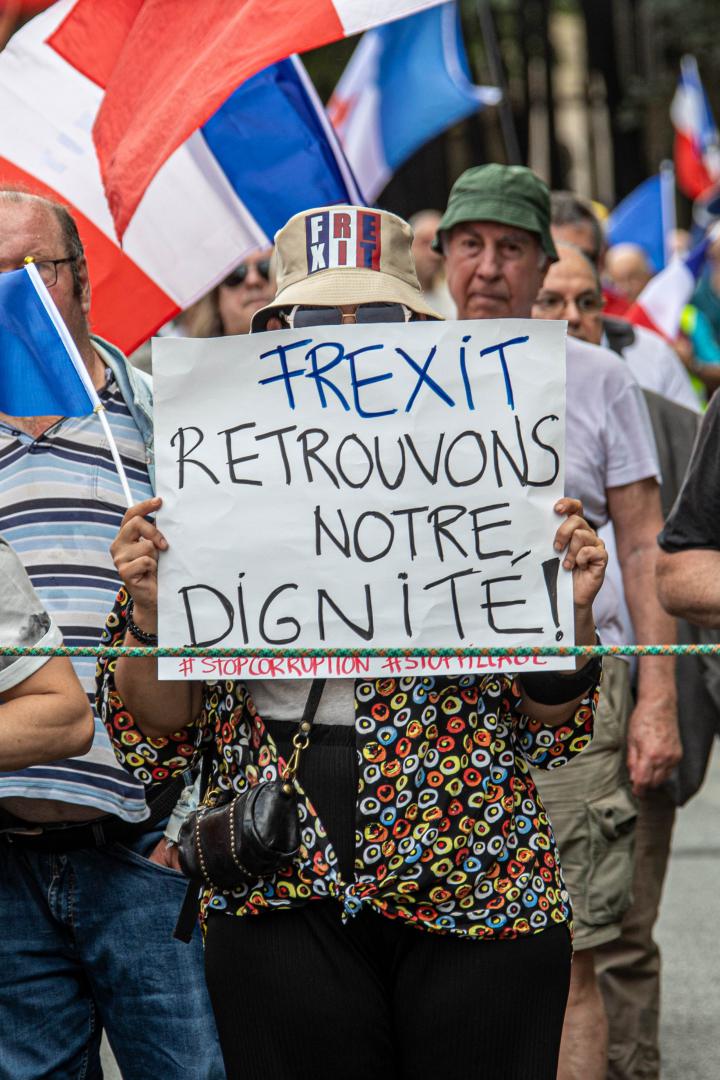 FRE
XIT
FREXIT
RETROUVONS
NOTRE
DIGNITÉ!
# STOPCORRUPTION #STOPPILLAGE